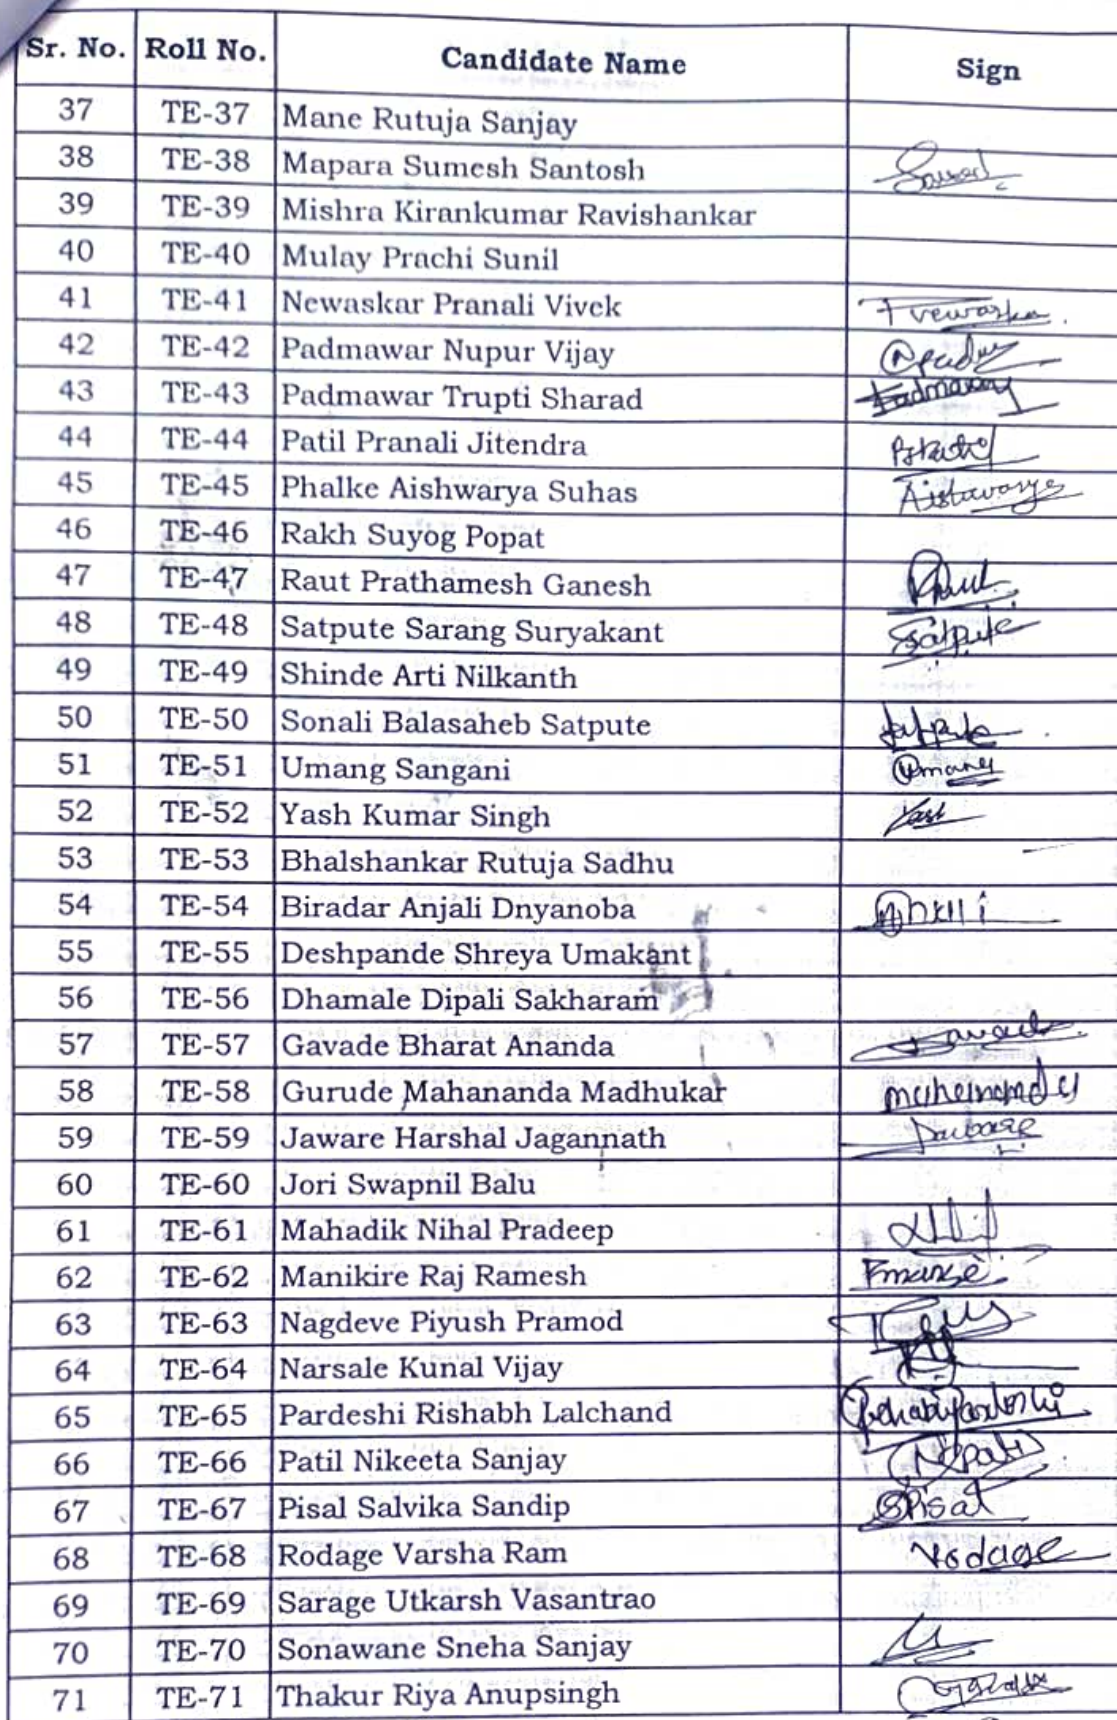 Sr. No. Roll No. Candidate Name Sign
37 TE-37 Mane Rutuja Sanjay
38 TE-38 Mapara Sumesh Santosh
39 TE-39 Mishra Kirankumar Ravishankar
40 TE-40 Mulay Prachi Sunil
41 TE-41 Newaskar Pranali Vivek
42 TE-42 Padmawar Nupur Vijay
43 TE-43 Padmawar Trupti Sharad
44 TE-44 Patil Pranali Jitendra
45 TE-45 Phalke Aishwarya Suhas
46 TE-46 Rakh Suyog Popat
47 TE-47 Raut Prathamesh Ganesh
48 TE-48 Satpute Sarang Suryakant Satpute
49 TE-49 Shinde Arti Nilkanth
50 TE-50 Sonali Balasaheb Satpute Satpute
51 TE-51 Umang Sangani Umang
52 TE-52 Yash Kumar Singh Yash
53 TE-53 Bhalshankar Rutuja Sadhu
54 TE-54 Biradar Anjali Dnyanoba
55 TE-55 Deshpande Shreya Umakant
56 TE-56 Dhamale Dipali Sakharam
57 TE-57 Gavade Bharat Ananda
58 TE-58 Gurude Mahananda Madhukar
59 TE-59 Jaware Harshal Jagannath
60 TE-60 Jori Swapnil Balu
61 TE-61 Mahadik Nihal Pradeep
62 TE-62 Manikire Raj Ramesh
63 TE-63 Nagdeve Piyush Pramod
64 TE-64 Narsale Kunal Vijay
65 TE-65 Pardeshi Rishabh Lalchand
66 TE-66 Patil Nikeeta Sanjay
67 TE-67 Pisal Salvika Sandip SPisal
68 TE-68 Rodage Varsha Ram Rodage
69 TE-69 Sarage Utkarsh Vasantrao
70 TE-70 Sonawane Sneha Sanjay
71 TE-71 Thakur Riya Anupsingh